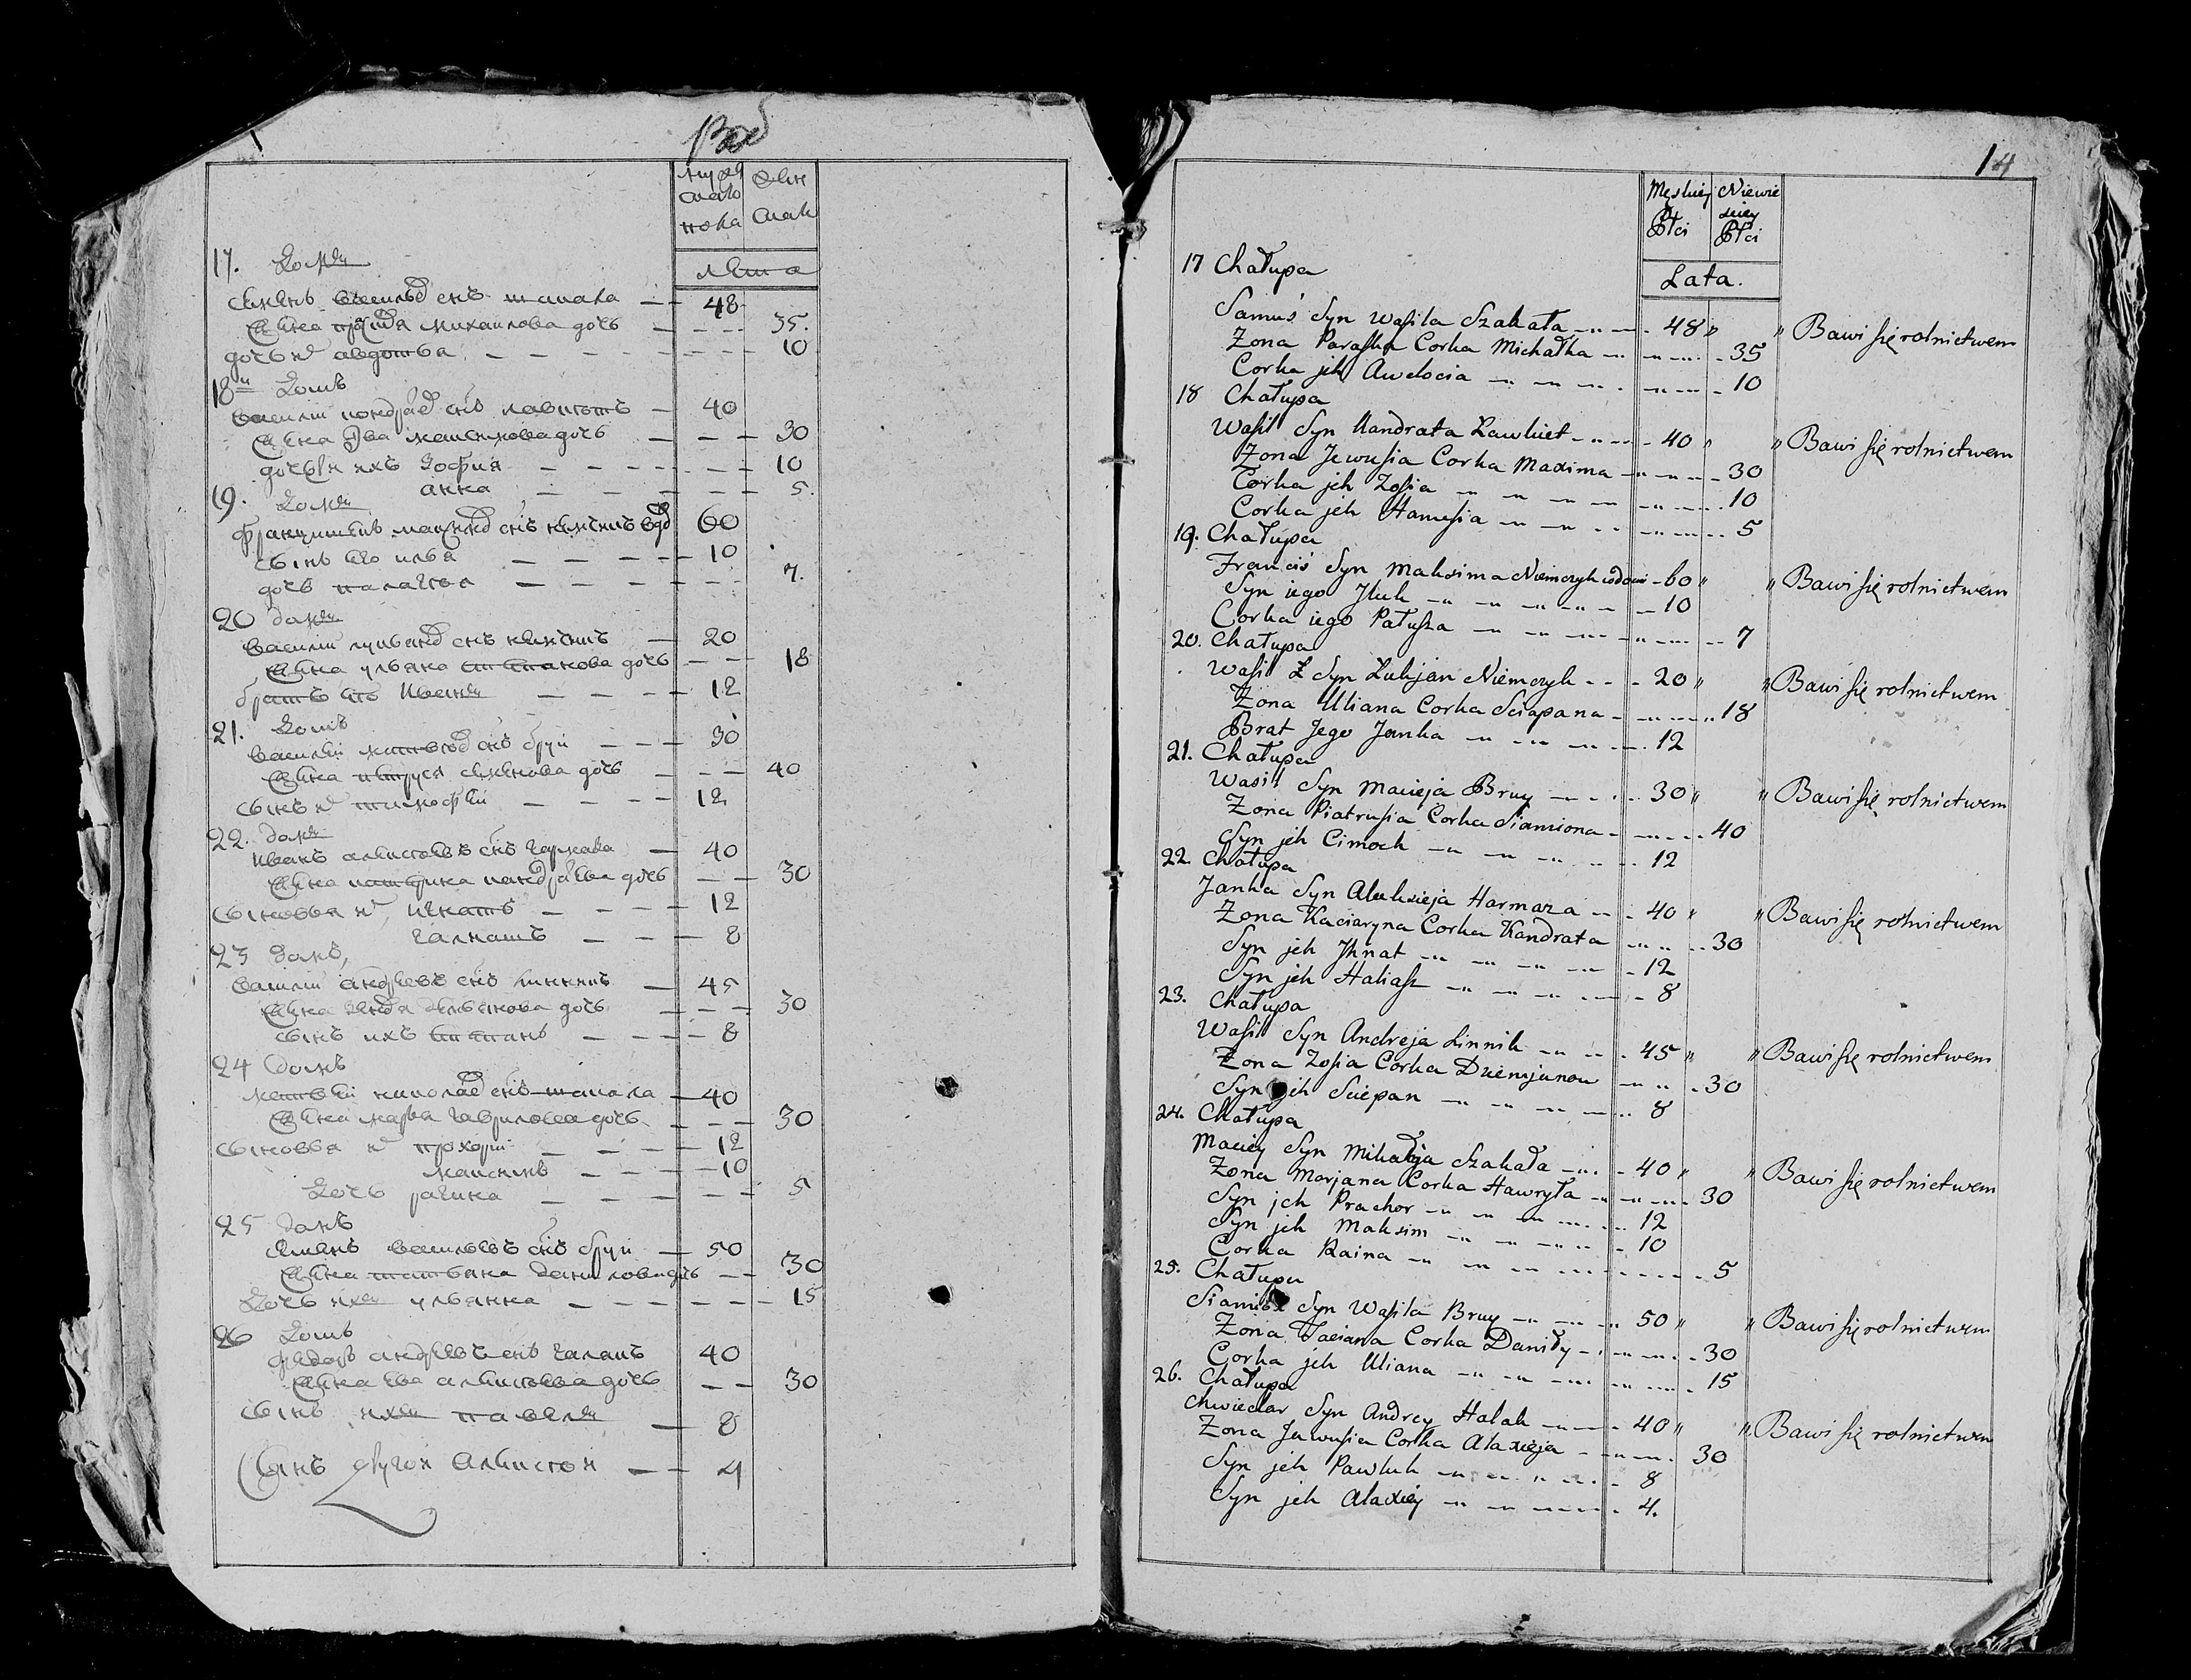 мужеска пола
женска
лета
17. домъ
семенъ васильев снъ шакала — 48
жена прося михаилова дочь — 35.
дочь их авдотья — 10
18й домъ
василий кондрат снъ лавкетъ — 40
жена Ева максимова дочь — 30
дочери ихъ зофия — 10
анна — 5.
19. домъ
францишекъ максимов снъ немчикъ вдов 60
сынъ его илья — 10
дочь палагея — 7.
20 домъ
василий лукьянов снъ немчикъ — 20
жена ульяна степанова дочь — 18
братъ его Иванъ — 12
21. домъ
василий матвеев снъ бруй — 30
жена петруся семенова дочь — 40
сынъ их тимофей — 12
22. домъ
иванъ алексеевъ снъ гармаза — 40
жена катерина кондратева дочь — 30
сыновья их игнатъ — 12
галиашъ — 8
23 домъ
василий андреевъ снъ линникъ — 45
жена демьянова дочь — 30
сынъ ихъ степанъ — 8
24 домъ
матвей николаев снъ шакала — 40
жена марья гаврилова дочь — 30
сыновья их прохоръ — 12
максимъ — 10
дочь рагина — 5
25 домъ
семенъ васильевъ снъ бруй — 50
жена татьяна данилова дочь — 30
дочь ихъ ульянна — 15
26 домъ
федоръ андреевъ снъ галакъ 40
жена ева алексеева дочь — 30
сынъ ихъ павелъ — 8
сынъ другой алексей — 4
14
Męskiej Płci
Niewieściey Płci
Lata.
17 Chałupa
Samuś Syn Wasila Szakała 48 " " Bawi się rolnictwem
Zona Paraska Corka Michałka 35
Corka jeh Awdocia 10
18 Chałupa
Wasil Syn Kandrata Ławkiet 40 " " Bawi się rolnictwem
Zona Jewusia Corka Maxima 30
Corka jeh Zosia 10
Corka jeh Hanusia 5
19. Chałupa
Franciś Syn Maksima Niemczyk wdowi 60 " " Bawi się rolnictwem
Syn iego Jluk 10
Corka iego Patusza 7
20. Chałupa
Wasil Ł Syn Łukjan Niemczyk 20 " " Bawi się rolnictwem
Zona Uliana Corka Sciapana 18
Brat Jego Janka 12
21. Chałupa
Wasil Syn Macieja Bruy 30 " " Bawi się rolnictwem
Zona Piatrusia Corka Siamiona 40
Syn jeh Cimoch 12
22. Chałupa
Janka Syn Aluksieja Harmaza 40 " " Bawi się rolnictwem
Zona Kaciaryna Corka Kandrata 30
Syn jeh Jhnat 12
Syn jeh Haliasz 8
23. Chałupa
Wasil Syn Andreja Linnik 45 " " Bawi się rolnictwem
Zona Zosia Corka Dziemjanow 30
Syn jeh Sciepan 8
24. Chałupa
Maciey Syn Mikałaja Szakała 40 " " Bawi się rolnictwem
Zona Marjana Corka Hawryła 30
Syn jch Prachor 12
Syn jeh Maksim 10
Corka Raina 5
25. Chałupa
Siamion Syn Wasila Bruy 50 " " Bawi się rolnictwem
Zona Taciana Corka Daniły 30
Corka jeh Uliana 15
26. Chałupa
Chwiedar Syn Andrey Halak 40 " " Bawi się rolnictwem
Zona Jewusia Corka Alaxieja 30
Syn jeh Pawluk 8
Syn jeh Alaxiey 4.